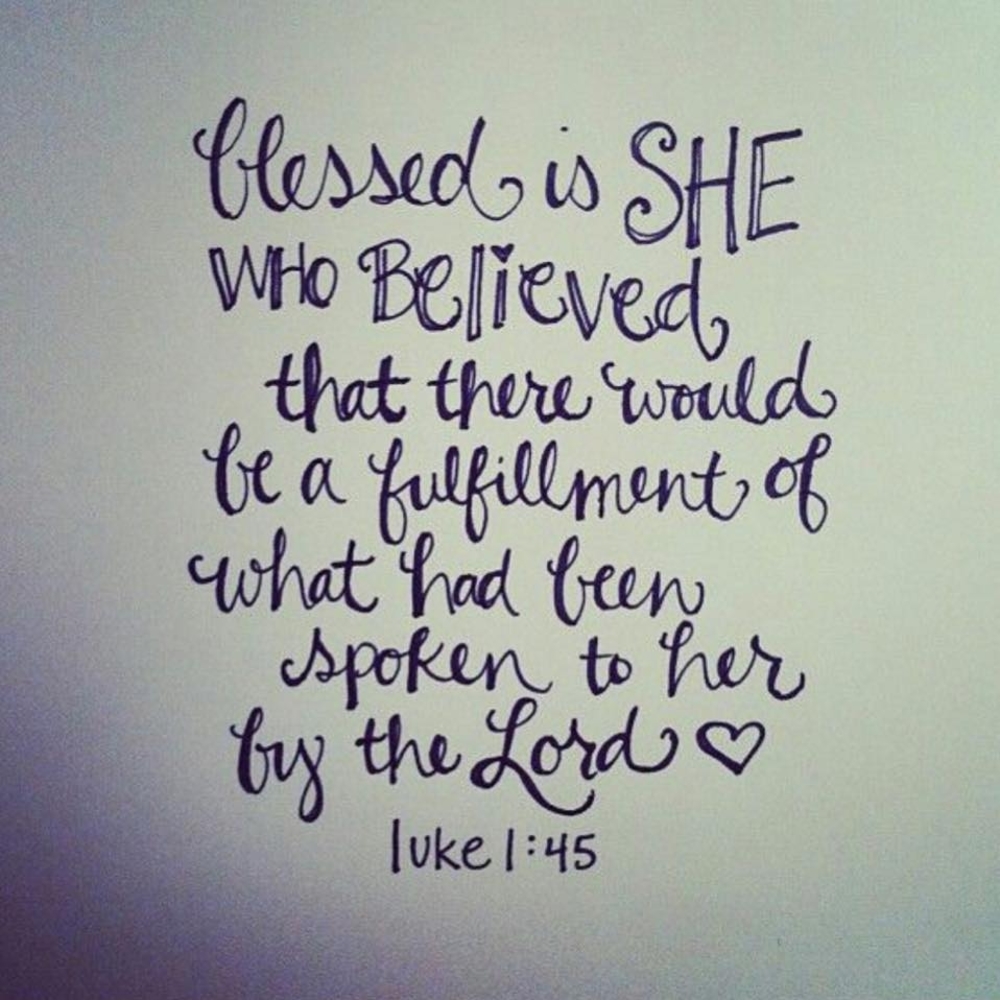 blessed is SHE
WHO Believed
that there would
be a fulfillment of
what had been
spoken to her
by the Lord ♡
luke 1:45